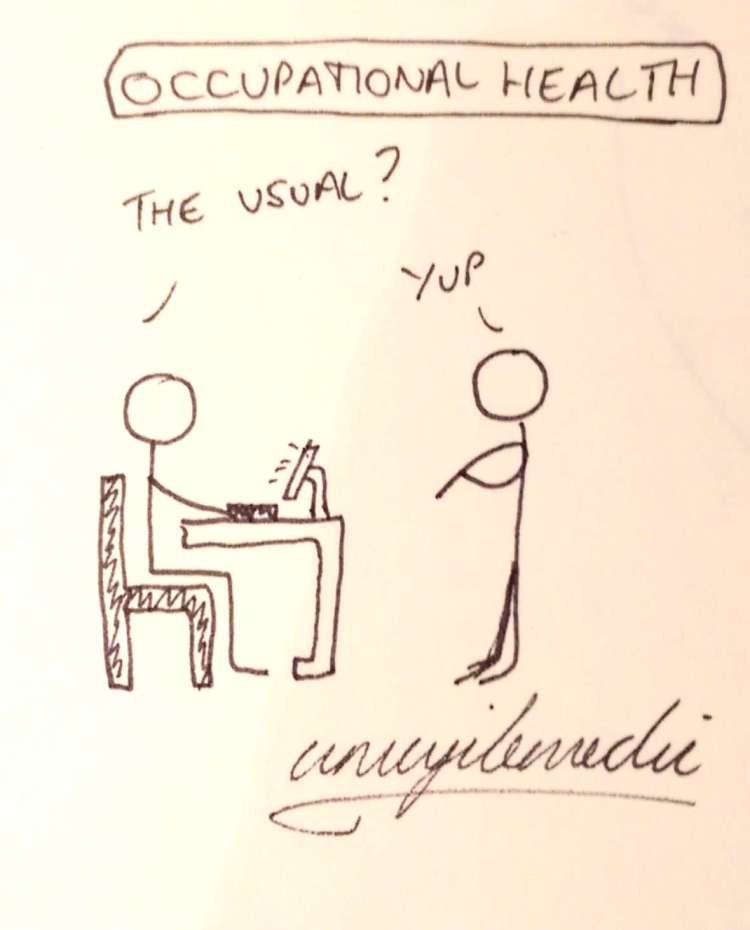 OCCUPATIONAL HEALTH
THE USUAL?
YUP